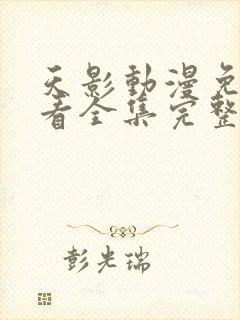 天影動漫免
看全集完整
彭光瑞